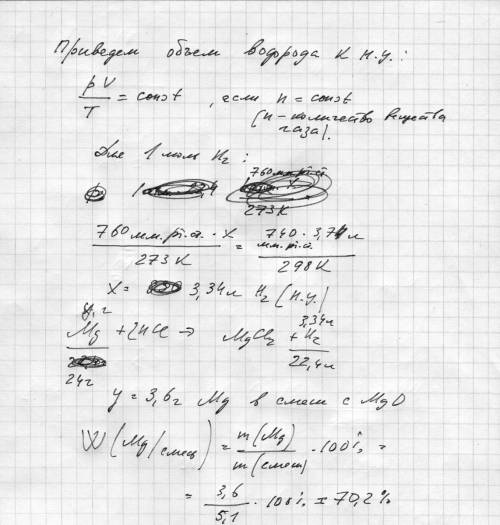 Приведем объем водорода к н.у.:
pV/T = const, если n = const
(n - количество вещества
газа).
Для 1 моль H₂:
760 мм.рт.ст.
273 K
760 мм.рт.ст. · X / 273 K = 740 мм.рт.ст. · 3,74 л / 298 K
X = 3,34 л H₂ (н.у.)
y, г 3,34 л
Mg + 2HCl → MgCl₂ + H₂
24 г 22,4 л
y = 3,6 г Mg в смеси с MgO
W (Mg/смесь) = m(Mg) / m(смеси) · 100% =
= 3,6 / 5,1 · 100% = 70,2%